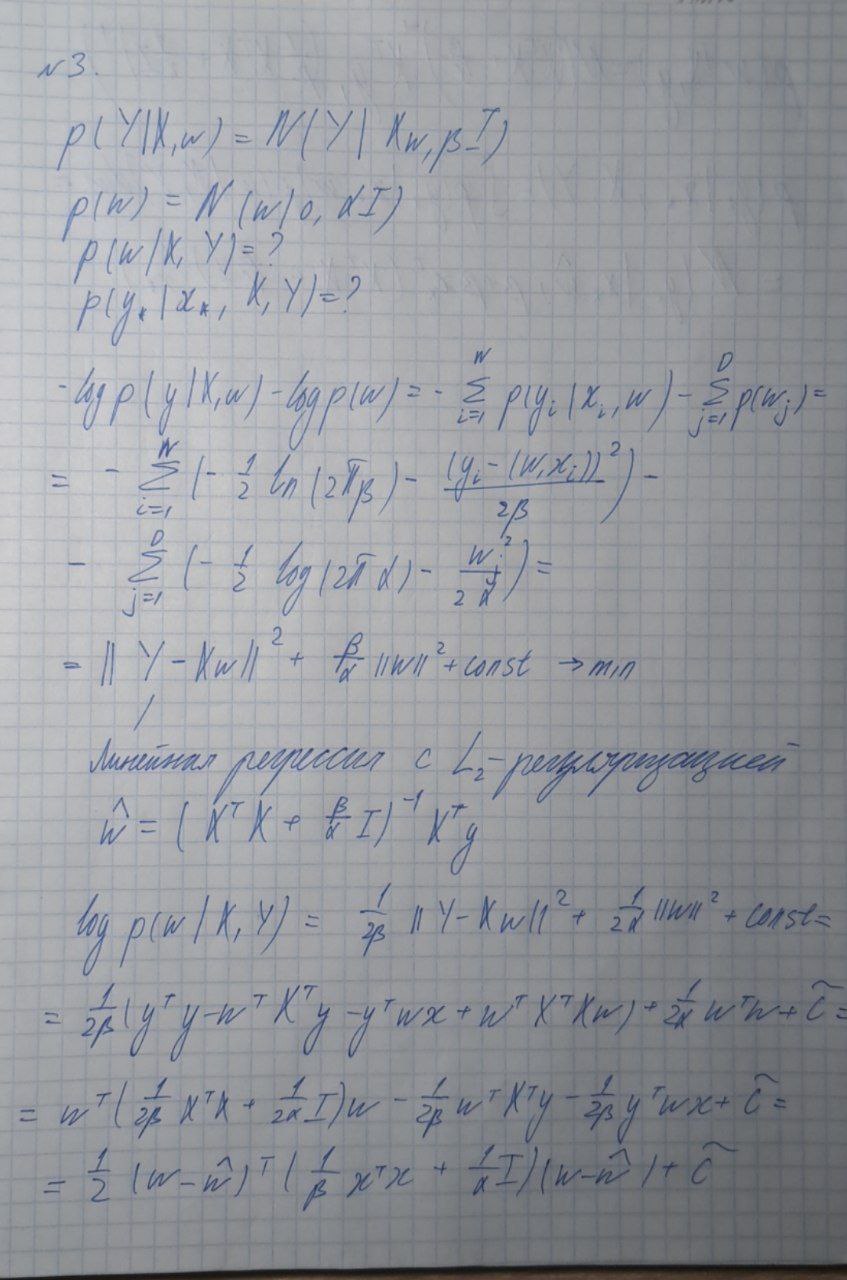 №3.
p(Y|X,w) = N(Y| Xw, βI)
p(w) = N(w|0, αI)
p(w|X, Y)=?
p(y_*|x_*, X, Y)=?
-log p(y|X,w) - log p(w) = - \sum_{i=1}^{N} p(y_i|x_i, w) - \sum_{j=1}^{D} p(w_j) =
= - \sum_{i=1}^{N} (- \frac{1}{2} ln(2πβ) - \frac{(y_i - (w,x_i))^2}{2β}) -
- \sum_{j=1}^{D} (- \frac{1}{2} log(2πα) - \frac{w_j^2}{2α}) =
= || Y - Xw ||^2 + \frac{β}{α} ||w||^2 + const → min
Линейная регрессия с L_2-регуляризацией
\hat{w} = (X^T X + \frac{β}{α} I)^{-1} X^T y
log p(w|X, Y) = \frac{1}{2β} || Y - Xw ||^2 + \frac{1}{2α} ||w||^2 + const =
= \frac{1}{2β} (y^T y - w^T X^T y - y^T wx + w^T X^T Xw) + \frac{1}{2α} w^T w + \tilde{C} =
= w^T (\frac{1}{2β} X^T X + \frac{1}{2α} I) w - \frac{1}{2β} w^T X^T y - \frac{1}{2β} y^T wx + \tilde{C} =
= \frac{1}{2} (w - \hat{w})^T (\frac{1}{β} x^T x + \frac{1}{α} I)(w - \hat{w}) + \tilde{C}